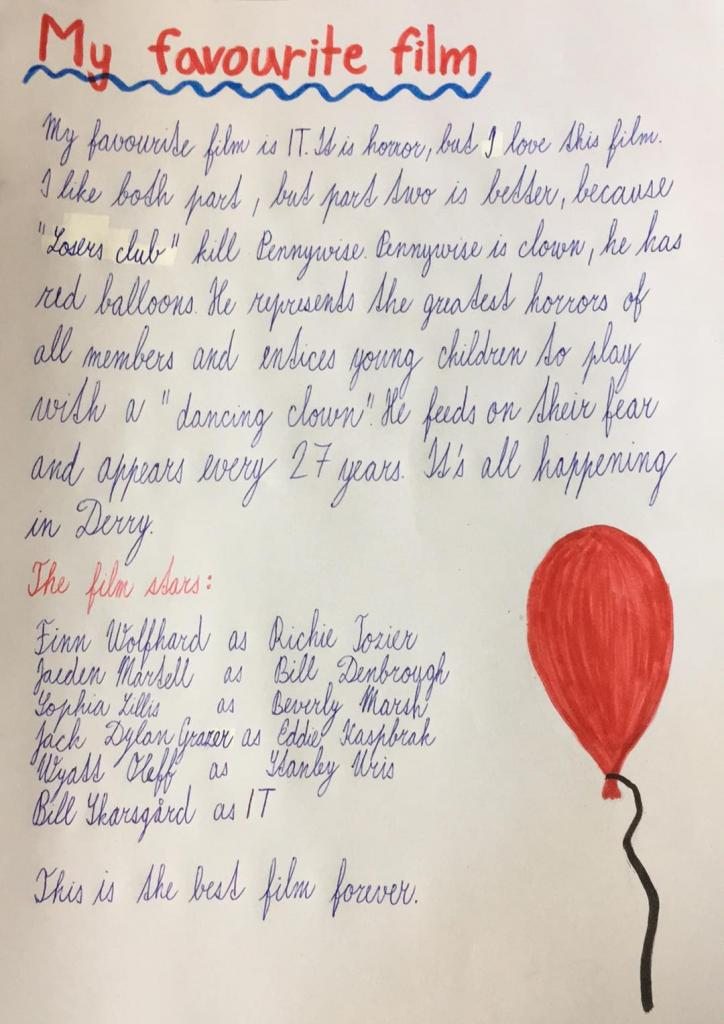 My favourite film
My favourite film is IT. It is horror, but I love this film.
I like both part, but part two is better, because
"Losers club" kill Pennywise. Pennywise is clown, he has
red balloons. He represents the greatest horrors of
all members and entices young children to play
with a "dancing clown". He feeds on their fear
and appears every 27 years. It's all happening
in Derry.
The film stars:
Finn Wolfhard as Richie Tozier
Jaeden Martell as Bill Denbrough
Sophia Lillis as Beverly Marsh
Jack Dylan Grazer as Eddie Kaspbrak
Wyatt Oleff as Stanley Uris
Bill Skarsgård as IT
This is the best film forever.